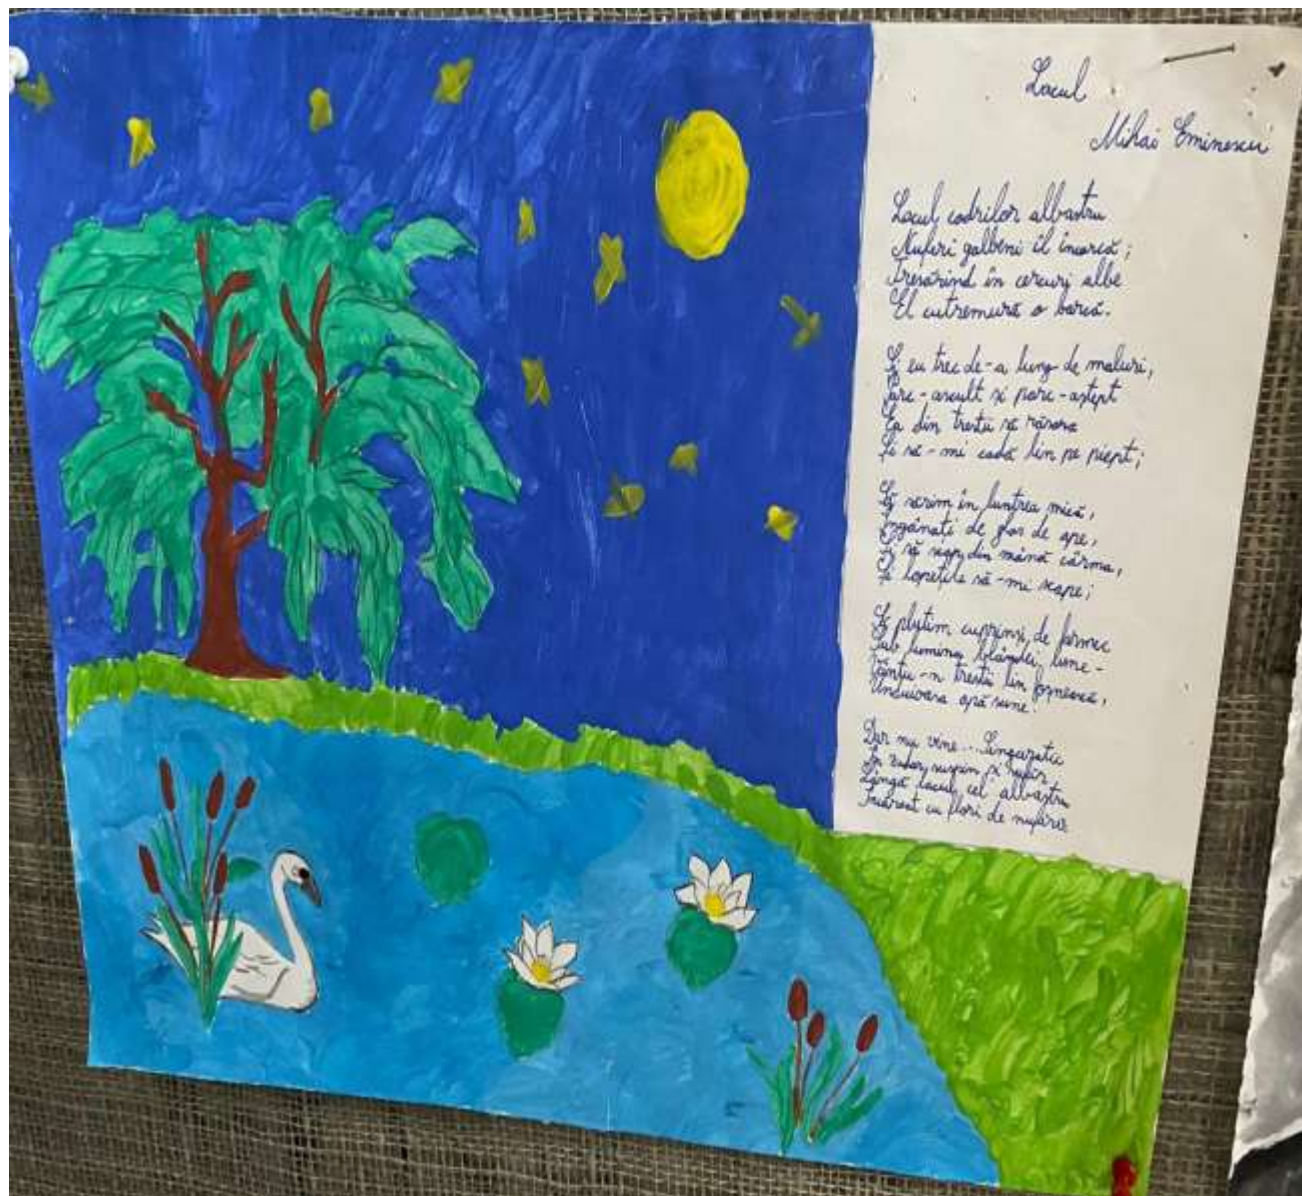 Lacul
Mihai Eminescu
Lacul codrilor albastru
Nuferi galbeni îl încarcă;
Tresărind în cercuri albe
El cutremură o barcă.
Și eu trec de-a lung de maluri,
Parc-ascult și parc-aștept
Ea din trestii să răsară
Și să-mi cadă lin pe piept;
Să sărim în luntrea mică,
Îngânați de glas de ape,
Și să scap din mână cârma,
Și lopețile să-mi scape;
Să plutim cuprinși de farmec
Sub lumina blândei lune-
Vântu-n trestii lin foșnească,
Unduioasa apă sune!
Dar nu vine... Singuratic
În zadar suspin și sufăr
Lângă lacul cel albastru
Încărcat cu flori de nufăr.